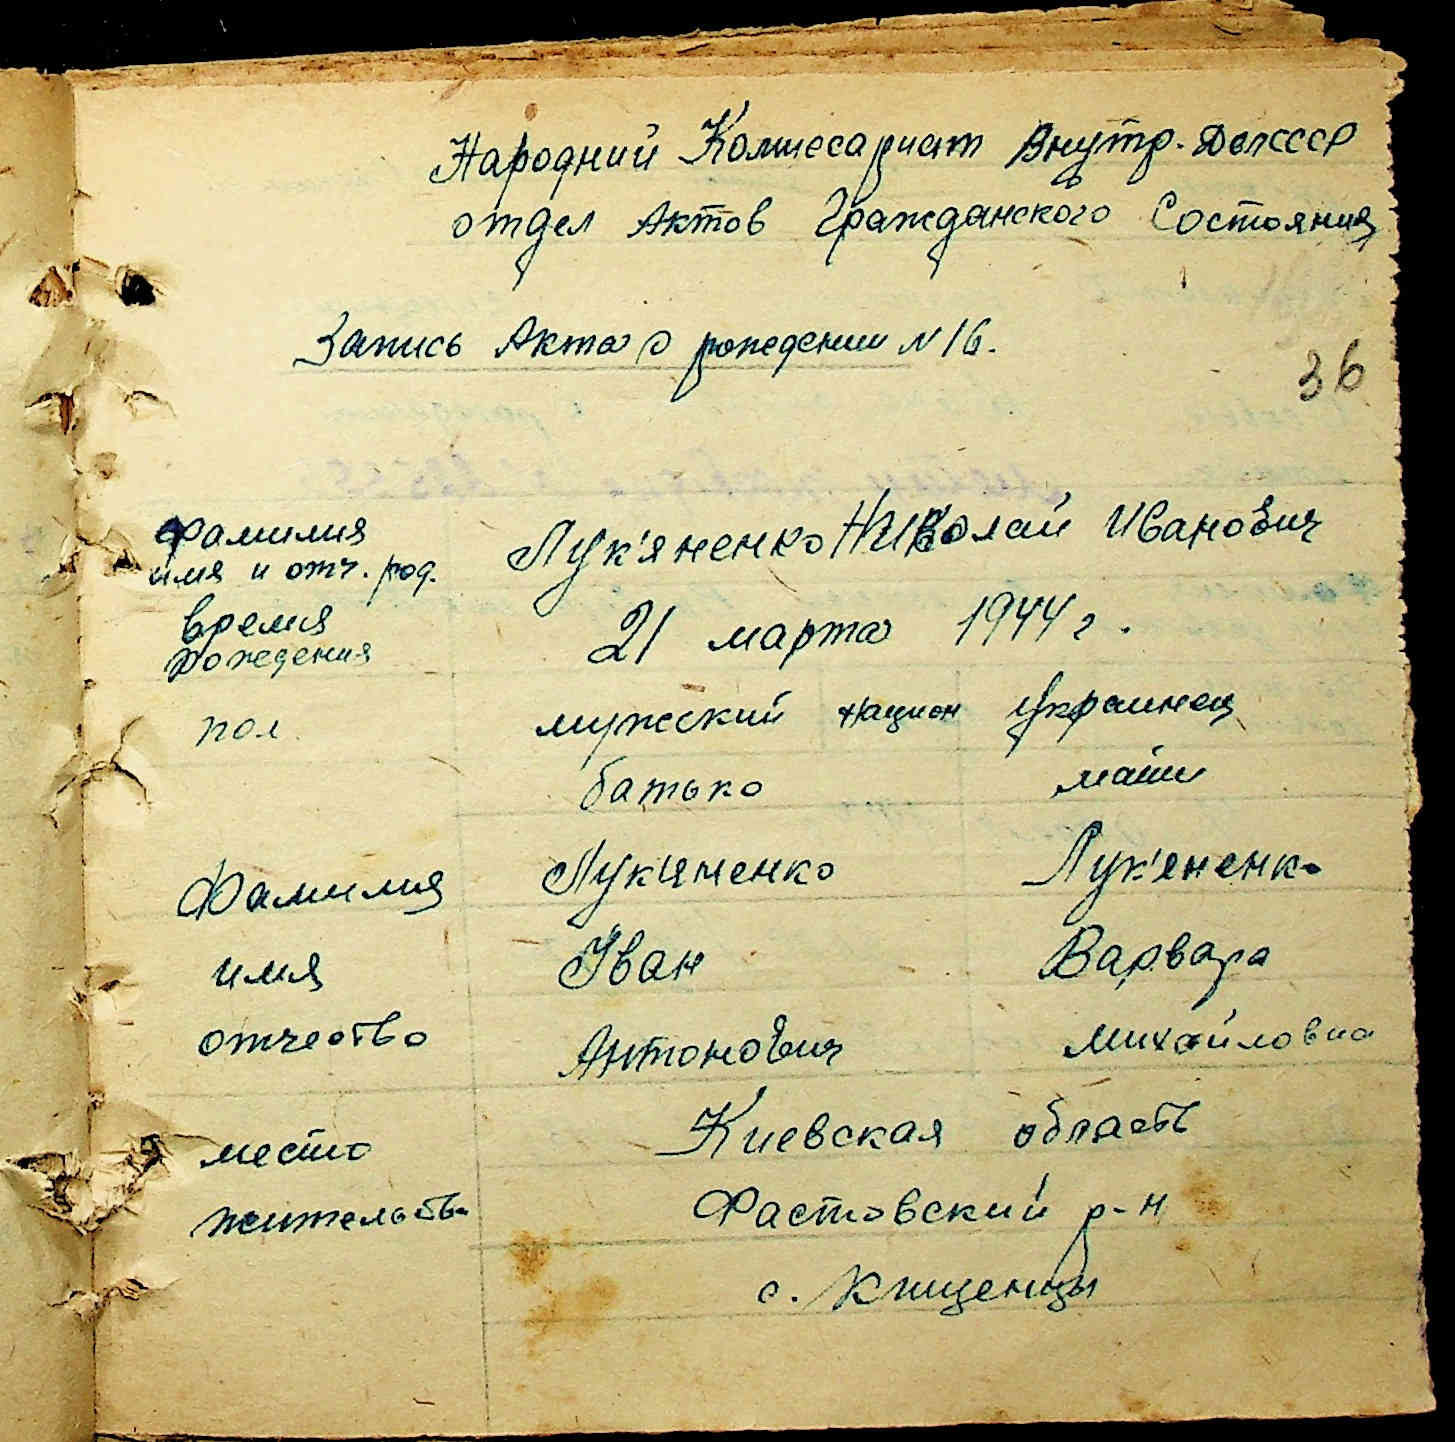 Народний Комиссариат Внутр. Дел СССР
отдел Актов Гражданского Состояния
Запись Акта о рождении N 16.
36
Фамилия имя и отч. род. Лук'яненко Николай Иванович
Время рождения 21 марта 1944 г.
пол мужский национ Украинец
батько мати
Фамилия Лук'яненко Лук'яненко
имя Іван Варвара
отчество Антонович Михайловна
место Киевская область
жительство Фастовский р-н
с.